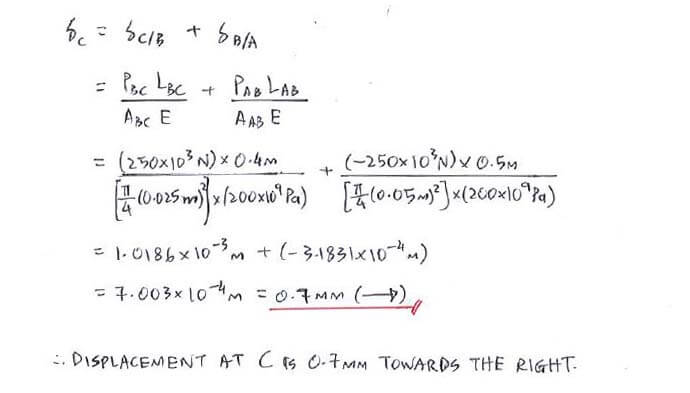 δc = δC/B + δB/A
= PBC LBC / ABC E + PAB LAB / AAB E
= (250x10³N) x 0.4M / [π/4 (0.025m)²] x (200x10⁹Pa) + (-250x10³N) x 0.5M / [π/4 (0.05M)²] x (200x10⁹Pa)
= 1.0186 x 10⁻³ M + (-3.1831x10⁻⁴M)
= 7.003x10⁻⁴M = 0.7MM (→)
∴ DISPLACEMENT AT C IS 0.7MM TOWARDS THE RIGHT.